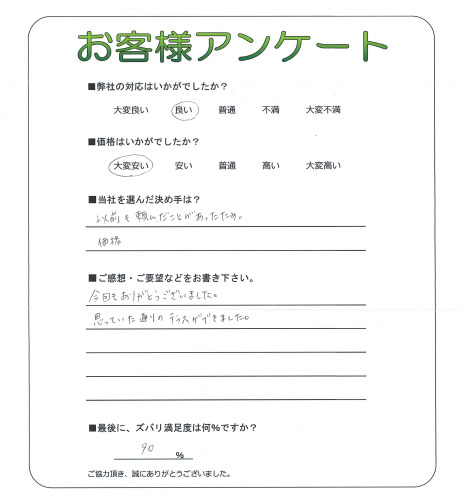 お客様アンケート
■弊社の対応はいかがでしたか？
大変良い 良い 普通 不満 大変不満
■価格はいかがでしたか？
大変安い 安い 普通 高い 大変高い
■当社を選んだ決め手は？
以前も頼んだことがあったため。
価格
■ご感想・ご要望などをお書き下さい。
今回もありがとうございました。
思っていた通りのテラスができました。
■最後に、ズバリ満足度は何%ですか？
90 %
ご協力頂き、誠にありがとうございました。